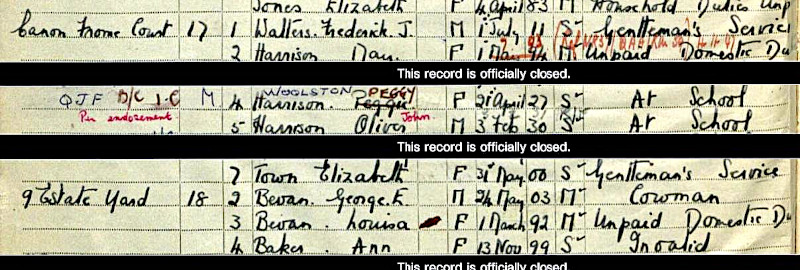 Jones Elizabeth F 4 April 83 M Household Duties Unp
Canon Frome Court 17 1 Walters. Frederick. J. M 1 July 11 S Gentleman's Servic
2 Harrison May. F 1 Mar 94 M Unpaid Domestic Du
This record is officially closed.
WOOLSTON PEGGY
QJF D/C 1-C M 4 Harrison. Peggy F 21 April 27 S At School
Per endorsement
John.
5 Harrison Oliver M 3 Feb 30 S At School
This record is officially closed.
7 Town Elizabeth F 31 May 00 S Gentleman's Service
9 Estate Yard 18 2 Bevan. George. E. M 24 May 03 M Cowman
3 Bevan. Louisa F 1 March 92 M Unpaid Domestic Du
4 Baker Ann F 13 Nov 99 S Invalid
This record is officially closed.